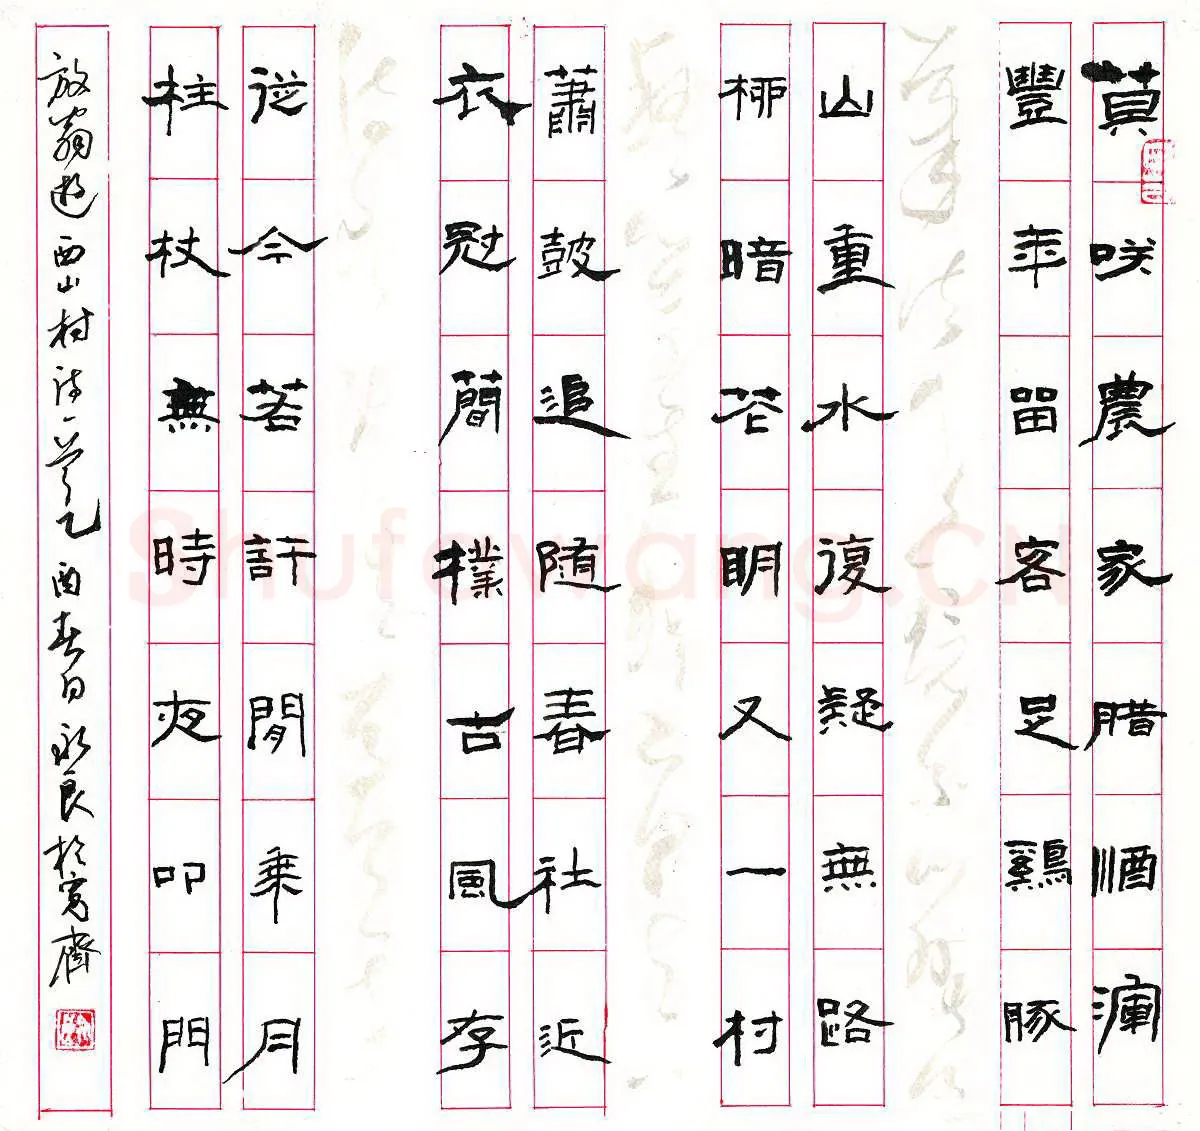 莫咲農家腊酒渾
豐年留客足鷄豚
山重水復疑無路
柳暗花明又一村
蕭鼓追随春社近
衣冠簡樸古風存
從今若許閒乘月
柱杖無時夜叩門
放翁遊西山村诗一首乙酉春日永良於寬齋
Shufawang.CN